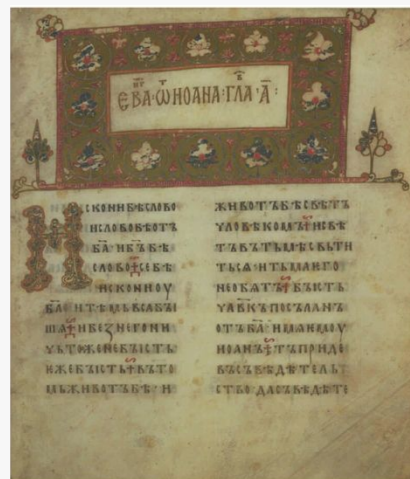 ЕВА·ѠИОАНА·ГЛА·А҃·
ИСКОНИБѢСЛОВО
ИСЛОВОБѢОТЪ
БА҃·ИБЪ҃БѢ
СЛОВО·СЕБѢ
ИСКОНИОУ
БА҃·ИТѢМЬВЬСАБЫ
ША·ИБЕЗНЕГОНИ
ЧЬТОЖЕНЕБЫСТЬ
ИЖЕБЫСТЬ·ВЪТО
МЬЖИВОТЪБѢ·И
ЖИВОТЪБѢСВѢТЪ
ЧЛОВѢКОМЪ·ИСВѢ
ТЪВЪТЬМѢСВЬТИ
ТЬСѦ·ИТЬМАѤГО
НЕОБѦТЪ·БЫСТЬ
ЧЛВ҃КЪПОСЪЛАНЪ
ОТЪБА҃·ИМѦѤМОУ
ИОАНЪ·ТЪПРИДЕ
ВЪСЪВѢДѢТЕЛЬ
СТВО·ДАСЪВѢДѢТЕ